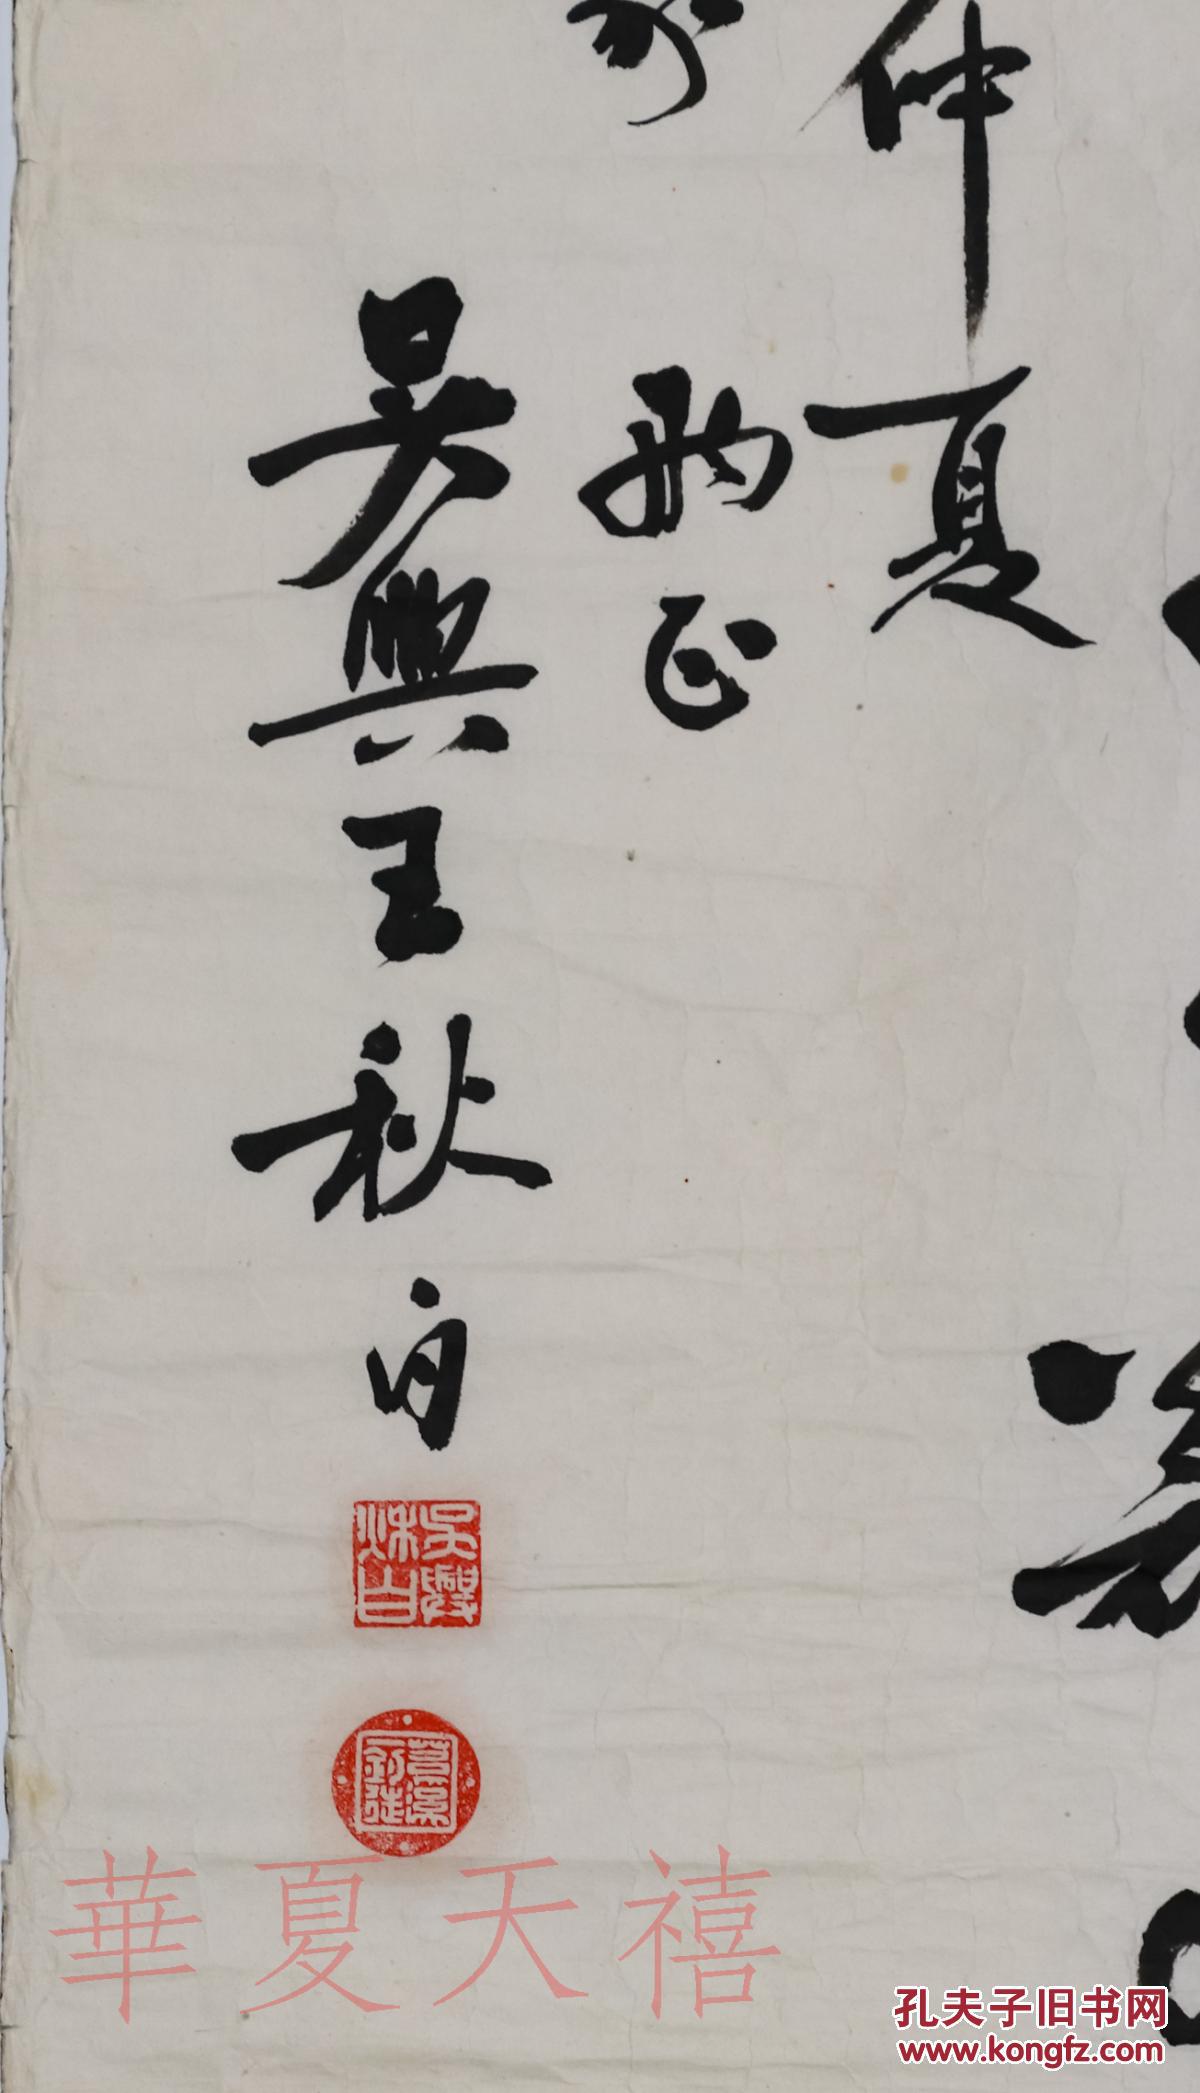 仲夏
正
吴興王秋白
吳興秋白
苕溪釣徒
華夏天禧
孔夫子旧书网
www.kongfz.com